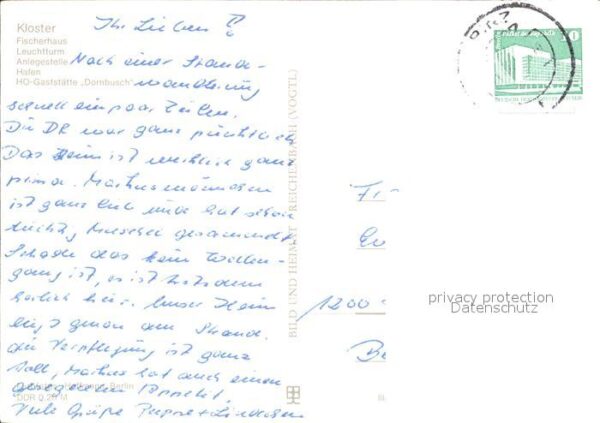 Kloster
Fischerhaus
Leuchtturm
Anlegestelle
Hafen
HO-Gaststätte „Dornbusch"
Ihr Lieben !!
Nach einer Strand-
wanderung
schnell ein paar Zeilen.
Die DR war ganz pünktlich
Das Heim ist wirklich ganz
prima. Markus
ist ganz lieb und hat schon
tüchtig Muscheln gesammelt
Schade das kein Wellen-
gang ist, es ist trotzdem
herrlich hier. Unser Heim
liegt genau am Strand.
die Verpflegung ist ganz
toll, Markus hat auch einen
guten Appetit.
Viele Grüße
Berlin
DDR M
BILD UND HEIMAT REICHENBACH (VOGTL)
1200
privacy protection
Datenschutz